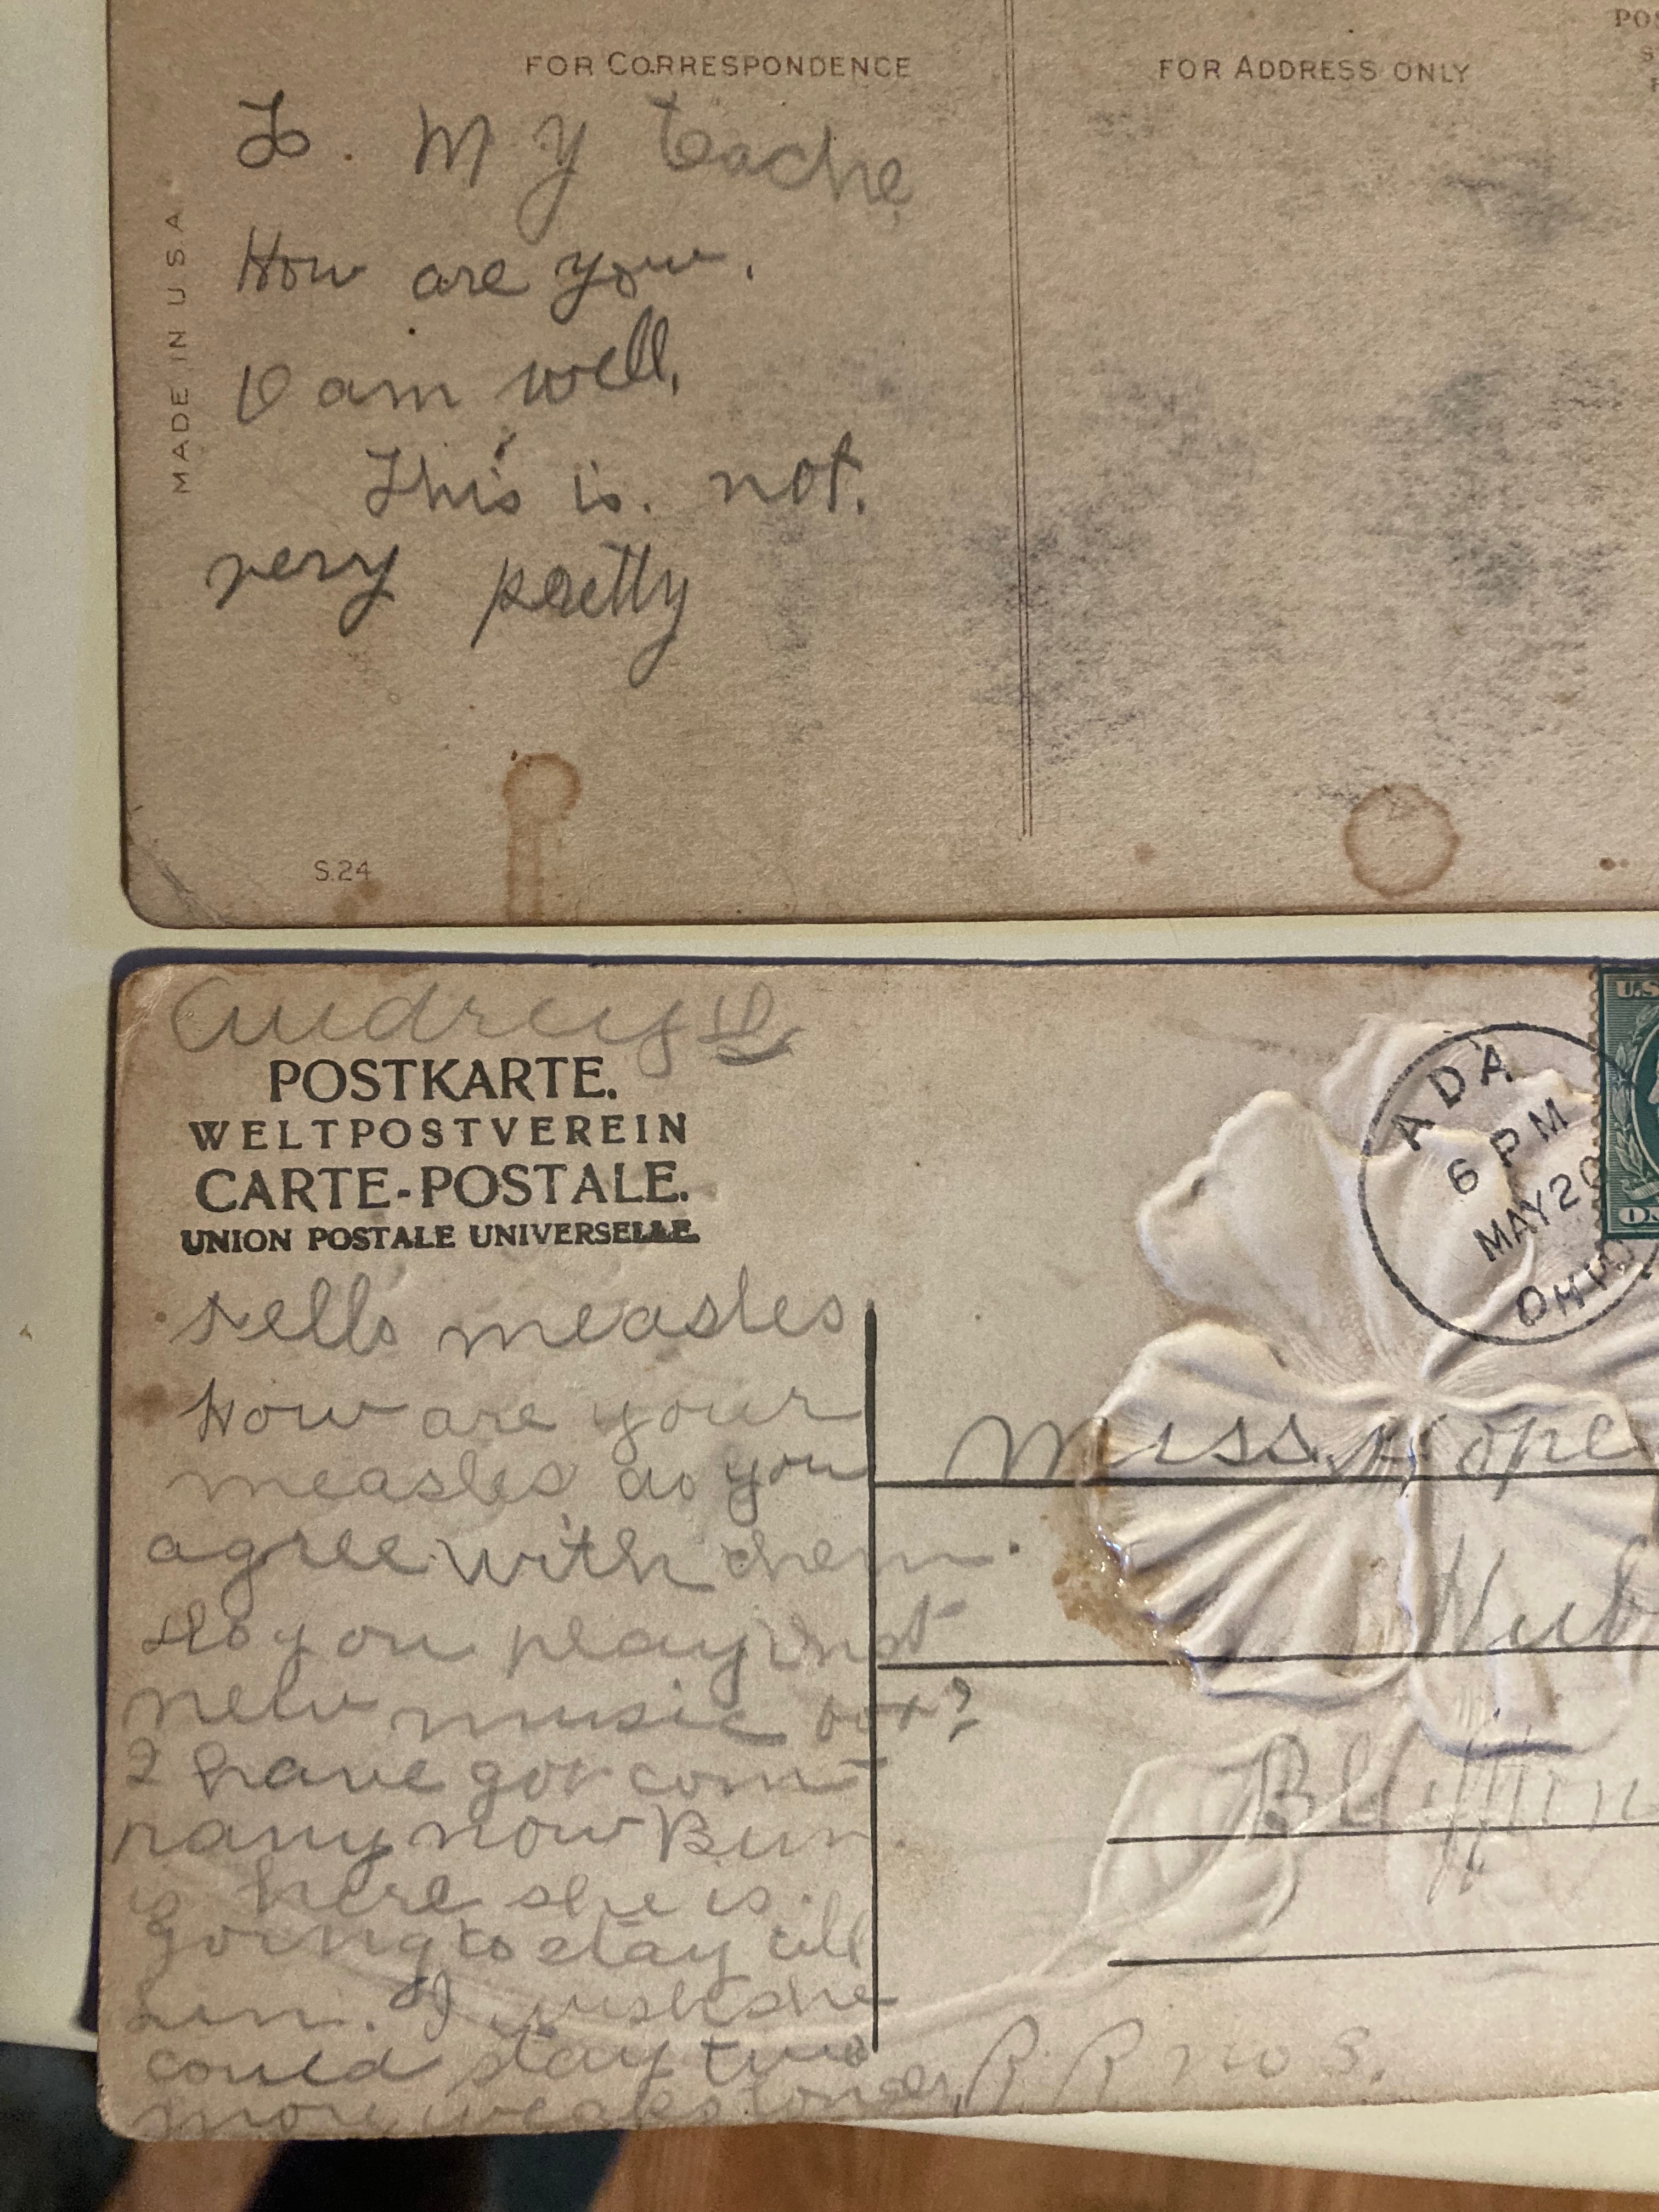 POS
S
FOR CORRESPONDENCE
FOR ADDRESS ONLY
MADE IN U.S.A
To. My teache
How are you.
I am well,
This is. not.
very pretty
S.24
Audrey
POSTKARTE.
WELTPOSTVEREIN
CARTE-POSTALE.
UNION POSTALE UNIVERSELLE.
ADA
6 PM
MAY 20
OHIO
U.S.
measles
How are your
measles do you
agree with them.
Do you play
new music box?
I have got com
pany now
is here she is
going to stay till
Sun. I wish she
could stay two
more weaks longer.
Miss Hope
Hub
Bluffton
R. R no 3.